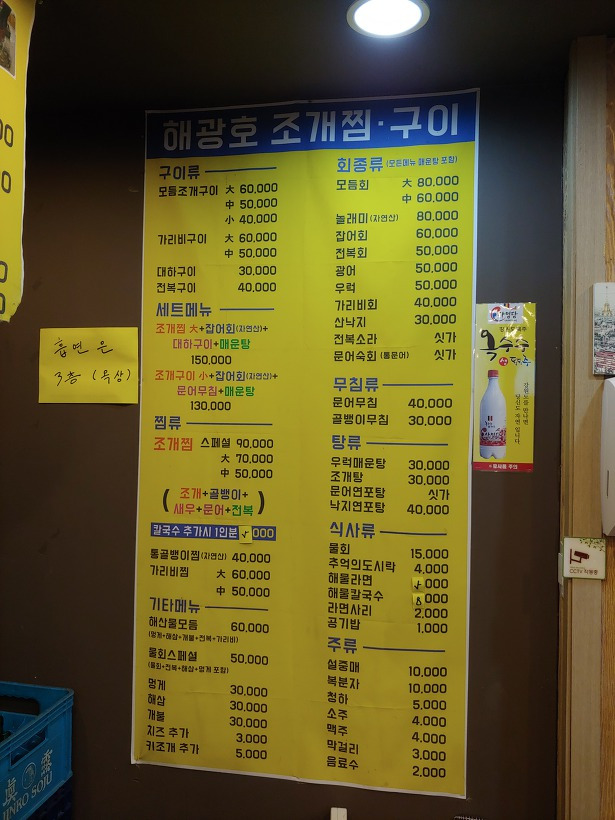 해광호 조개찜·구이
구이류
모듬조개구이 大 60,000
中 50,000
小 40,000
가리비구이 大 60,000
中 50,000
대하구이 30,000
전복구이 40,000
세트메뉴
조개찜 大+잡어회(자연산)+
대하구이+매운탕
150,000
조개구이 小+잡어회(자연산)+
문어무침+매운탕
130,000
찜류
조개찜 스페셜 90,000
大 70,000
中 50,000
(조개+골뱅이+
새우+문어+전복)
칼국수 추가시 1인분 5000
통골뱅이찜(자연산) 40,000
가리비찜 大 60,000
中 50,000
기타메뉴
해산물모듬 60,000
(멍게+해삼+개불+전복+가리비)
물회스페셜 50,000
(물회+전복+해삼+멍게 포함)
멍게 30,000
해삼 30,000
개불 30,000
치즈 추가 3,000
키조개 추가 5,000
회종류 (모든메뉴 매운탕 포함)
모듬회 大 80,000
中 60,000
놀래미(자연산) 80,000
잡어회 60,000
전복회 50,000
광어 50,000
우럭 50,000
가리비회 40,000
산낙지 30,000
전복소라 싯가
문어숙회 (통문어) 싯가
무침류
문어무침 40,000
골뱅이무침 30,000
탕류
우럭매운탕 30,000
조개탕 30,000
문어연포탕 싯가
낙지연포탕 40,000
식사류
물회 15,000
추억의도시락 4,000
해물라면 5,000
해물칼국수 8,000
라면사리 2,000
공기밥 1,000
주류
설중매 10,000
복분자 10,000
청하 5,000
소주 4,000
맥주 4,000
막걸리 3,000
음료수 2,000
흡연은
3층 (옥상)
옥수수
강원도를 만나면
당신도 자연입니다
眞露
JINRO SOJU
CCTV 작동중